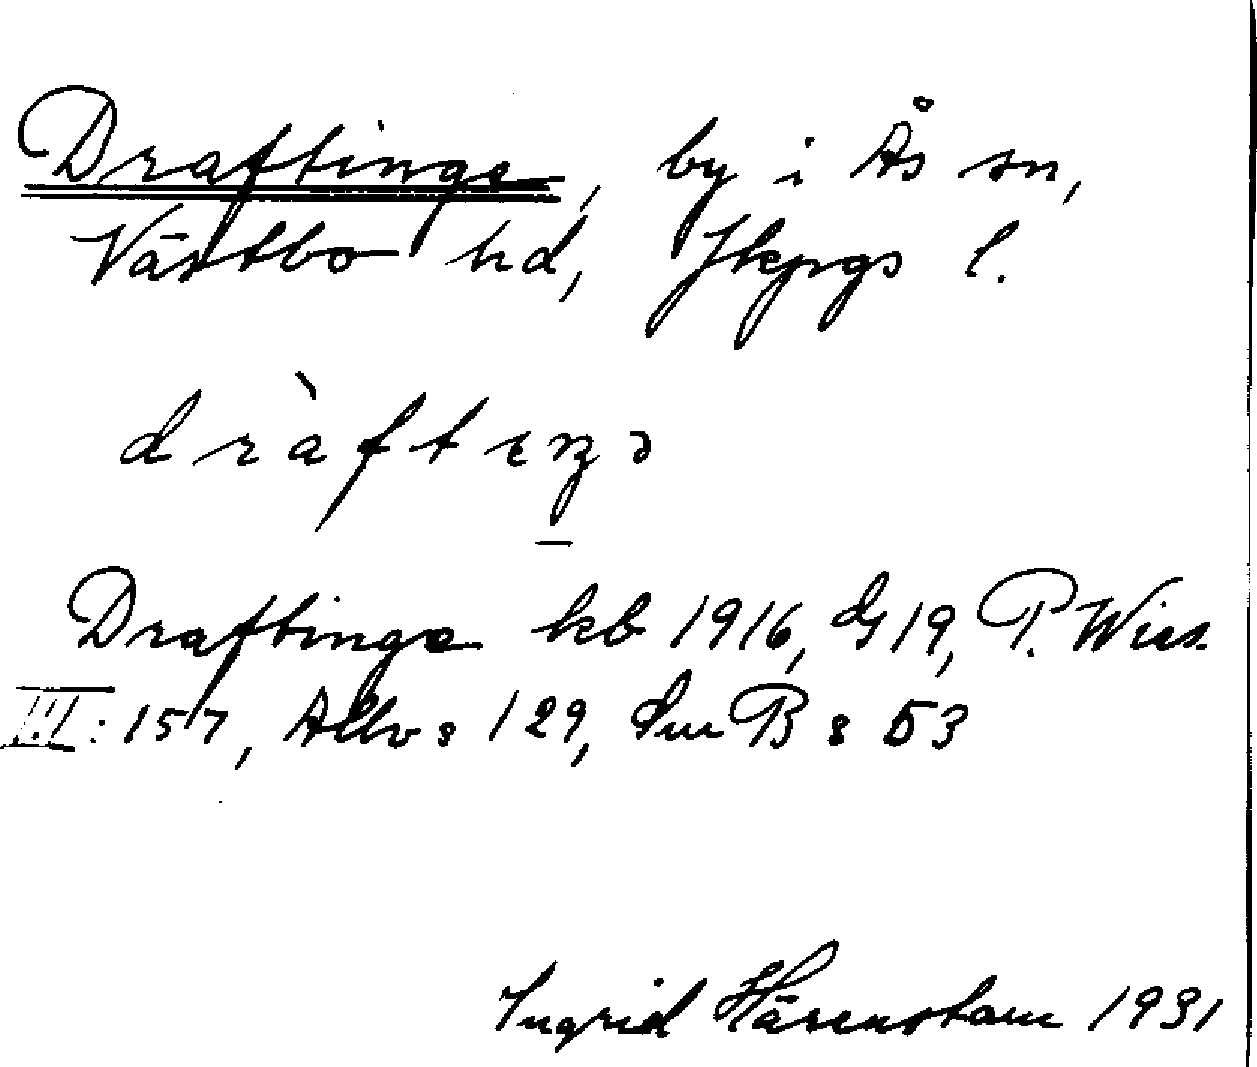 Draftinge, by i Ås sn,
Västbo hd, Jkpgs l.
dràftıŋə
Draftinge kb 1916, G19, P. Wies.
III: 157, Allv: 129, Sm B: 53
Ingrid Härenstam 1931